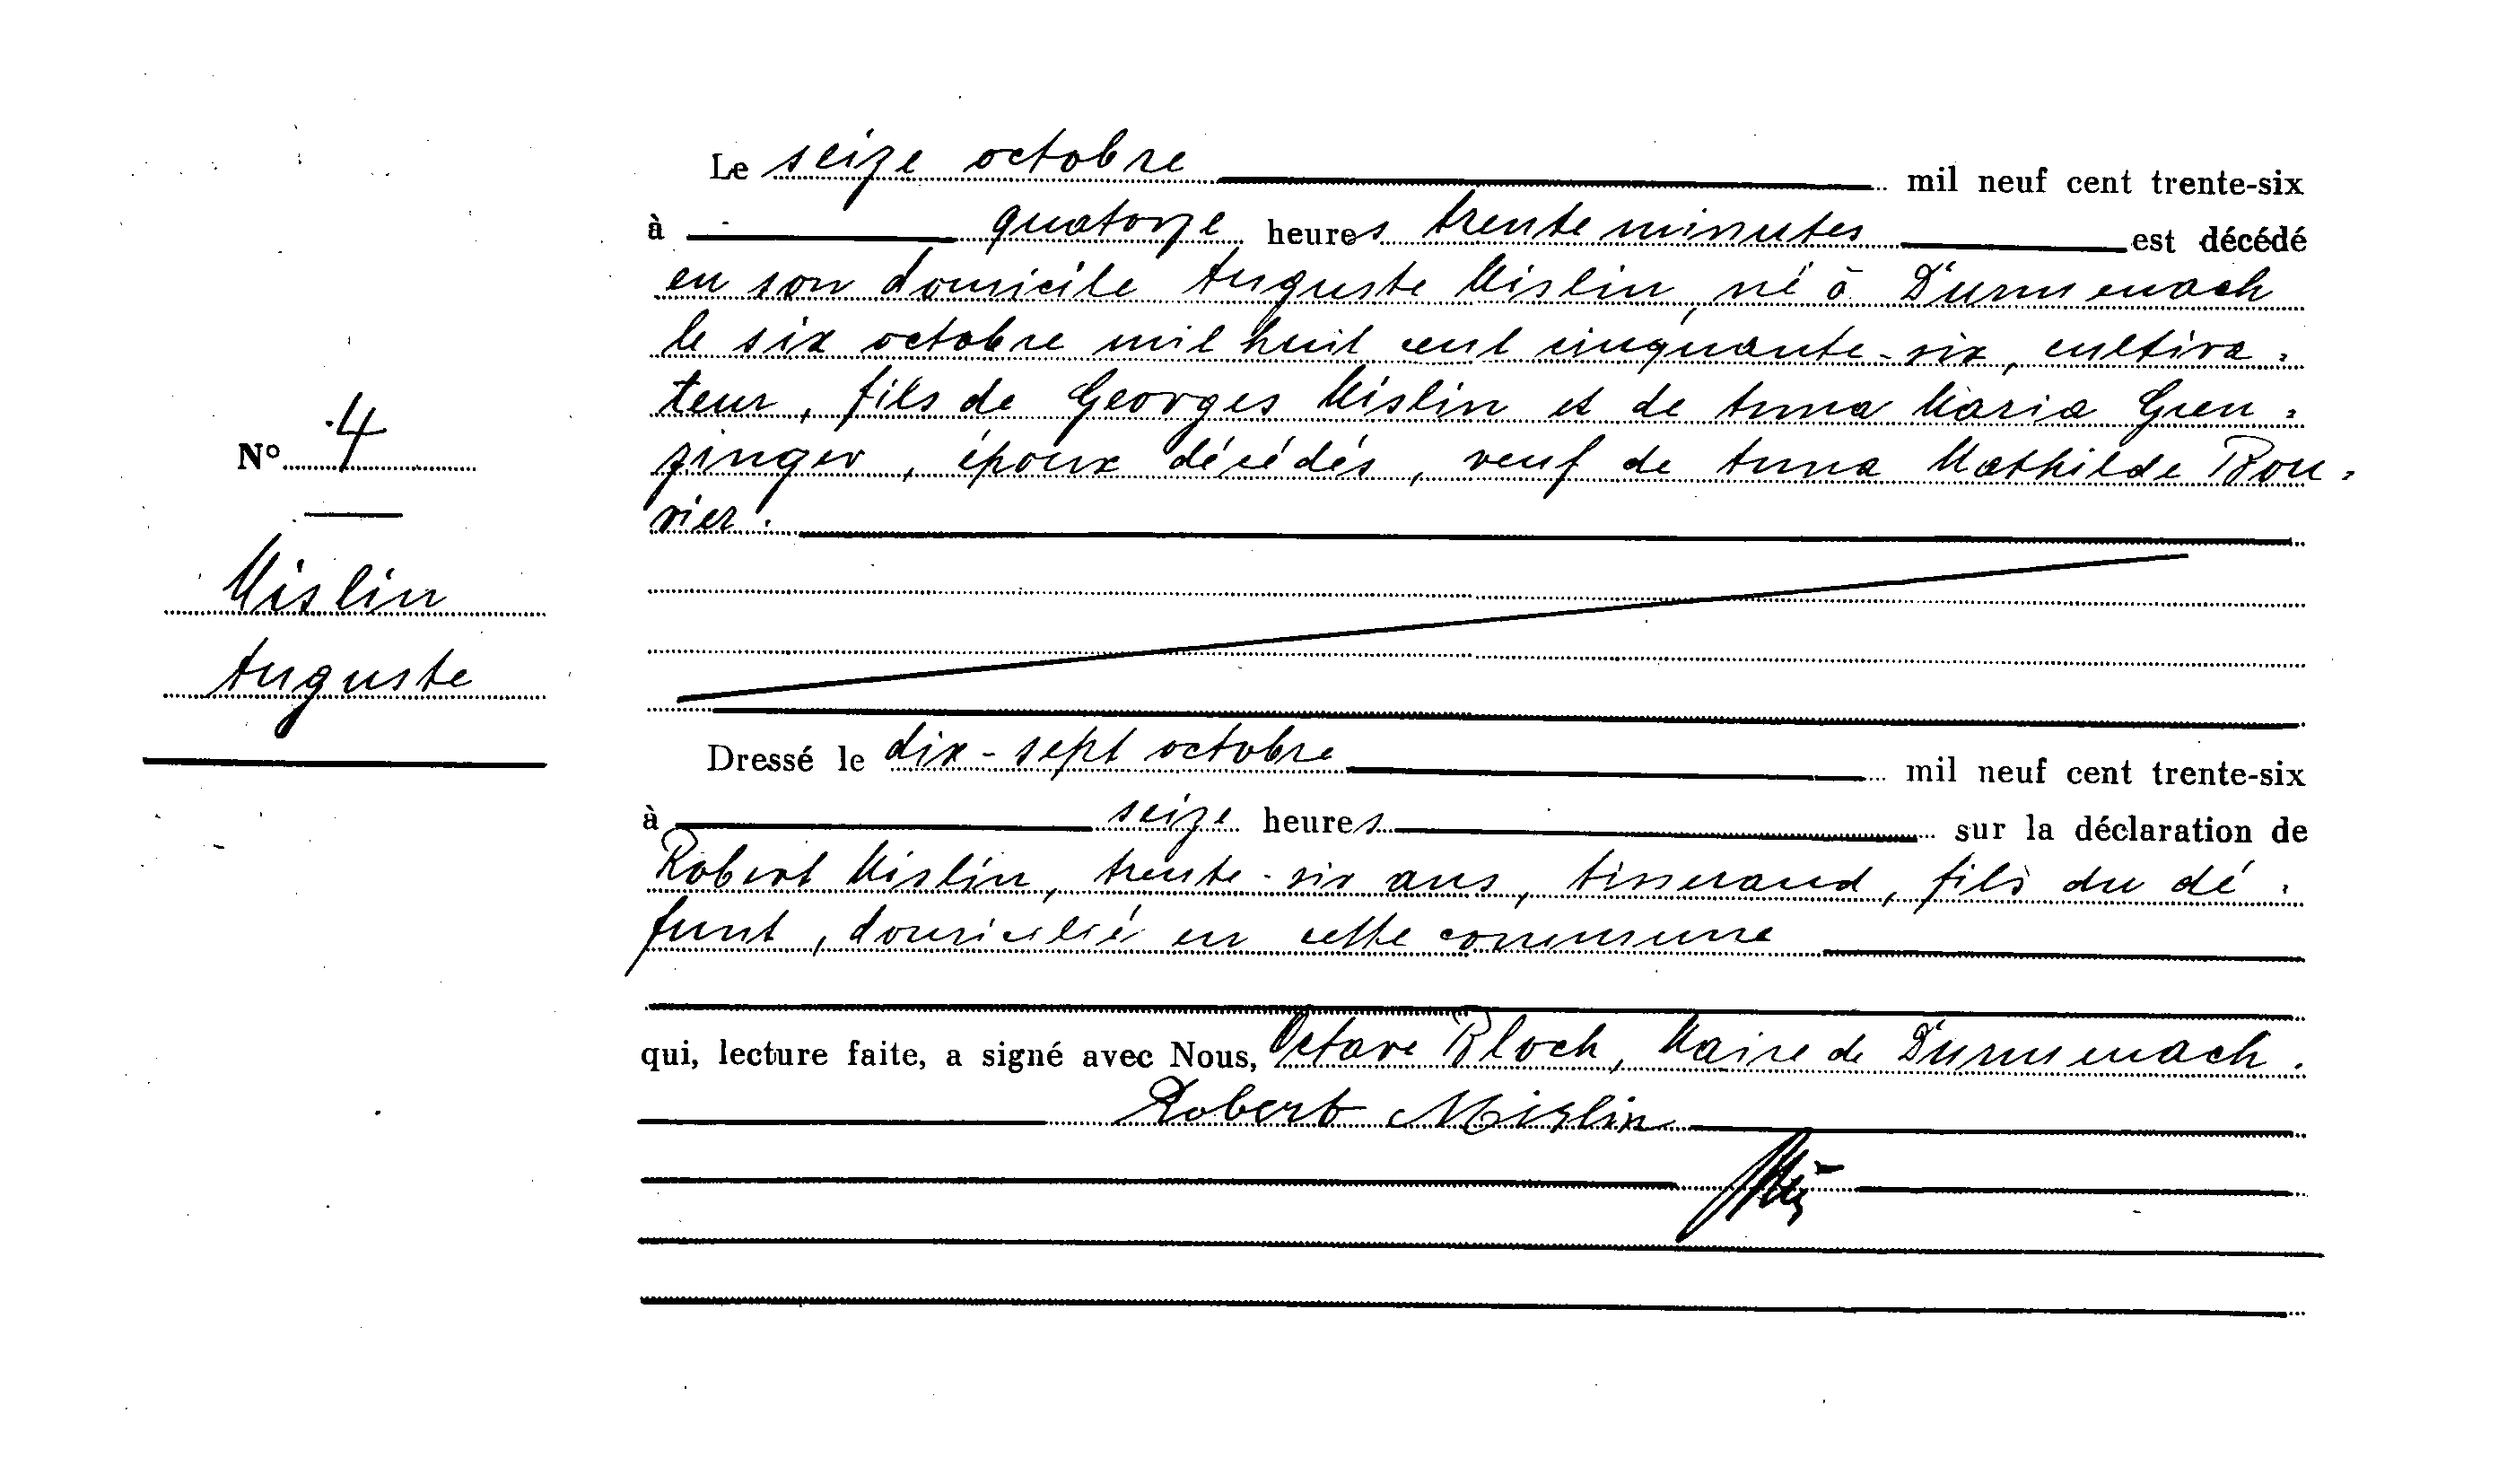 Le seize octobre mil neuf cent trente-six
à quatorze heures trente minutes est décédé
en son domicile Auguste Mislin, né à Durmenach
le six octobre mil huit cent cinquante-six, cultiva-
teur, fils de Georges Mislin et de Anna Maria Gren-
zinger, époux décédés, veuf de Anna Mathilde Bou-
vier.
N° 4
Mislin
Auguste
Dressé le dix-sept octobre mil neuf cent trente-six
à seize heures sur la déclaration de
Robert Mislin, trente-six ans, tisserand, fils du dé-
funt, domicilié en cette commune
qui, lecture faite, a signé avec Nous, Octave Bloch, Maire de Durmenach.
Robert Mislin